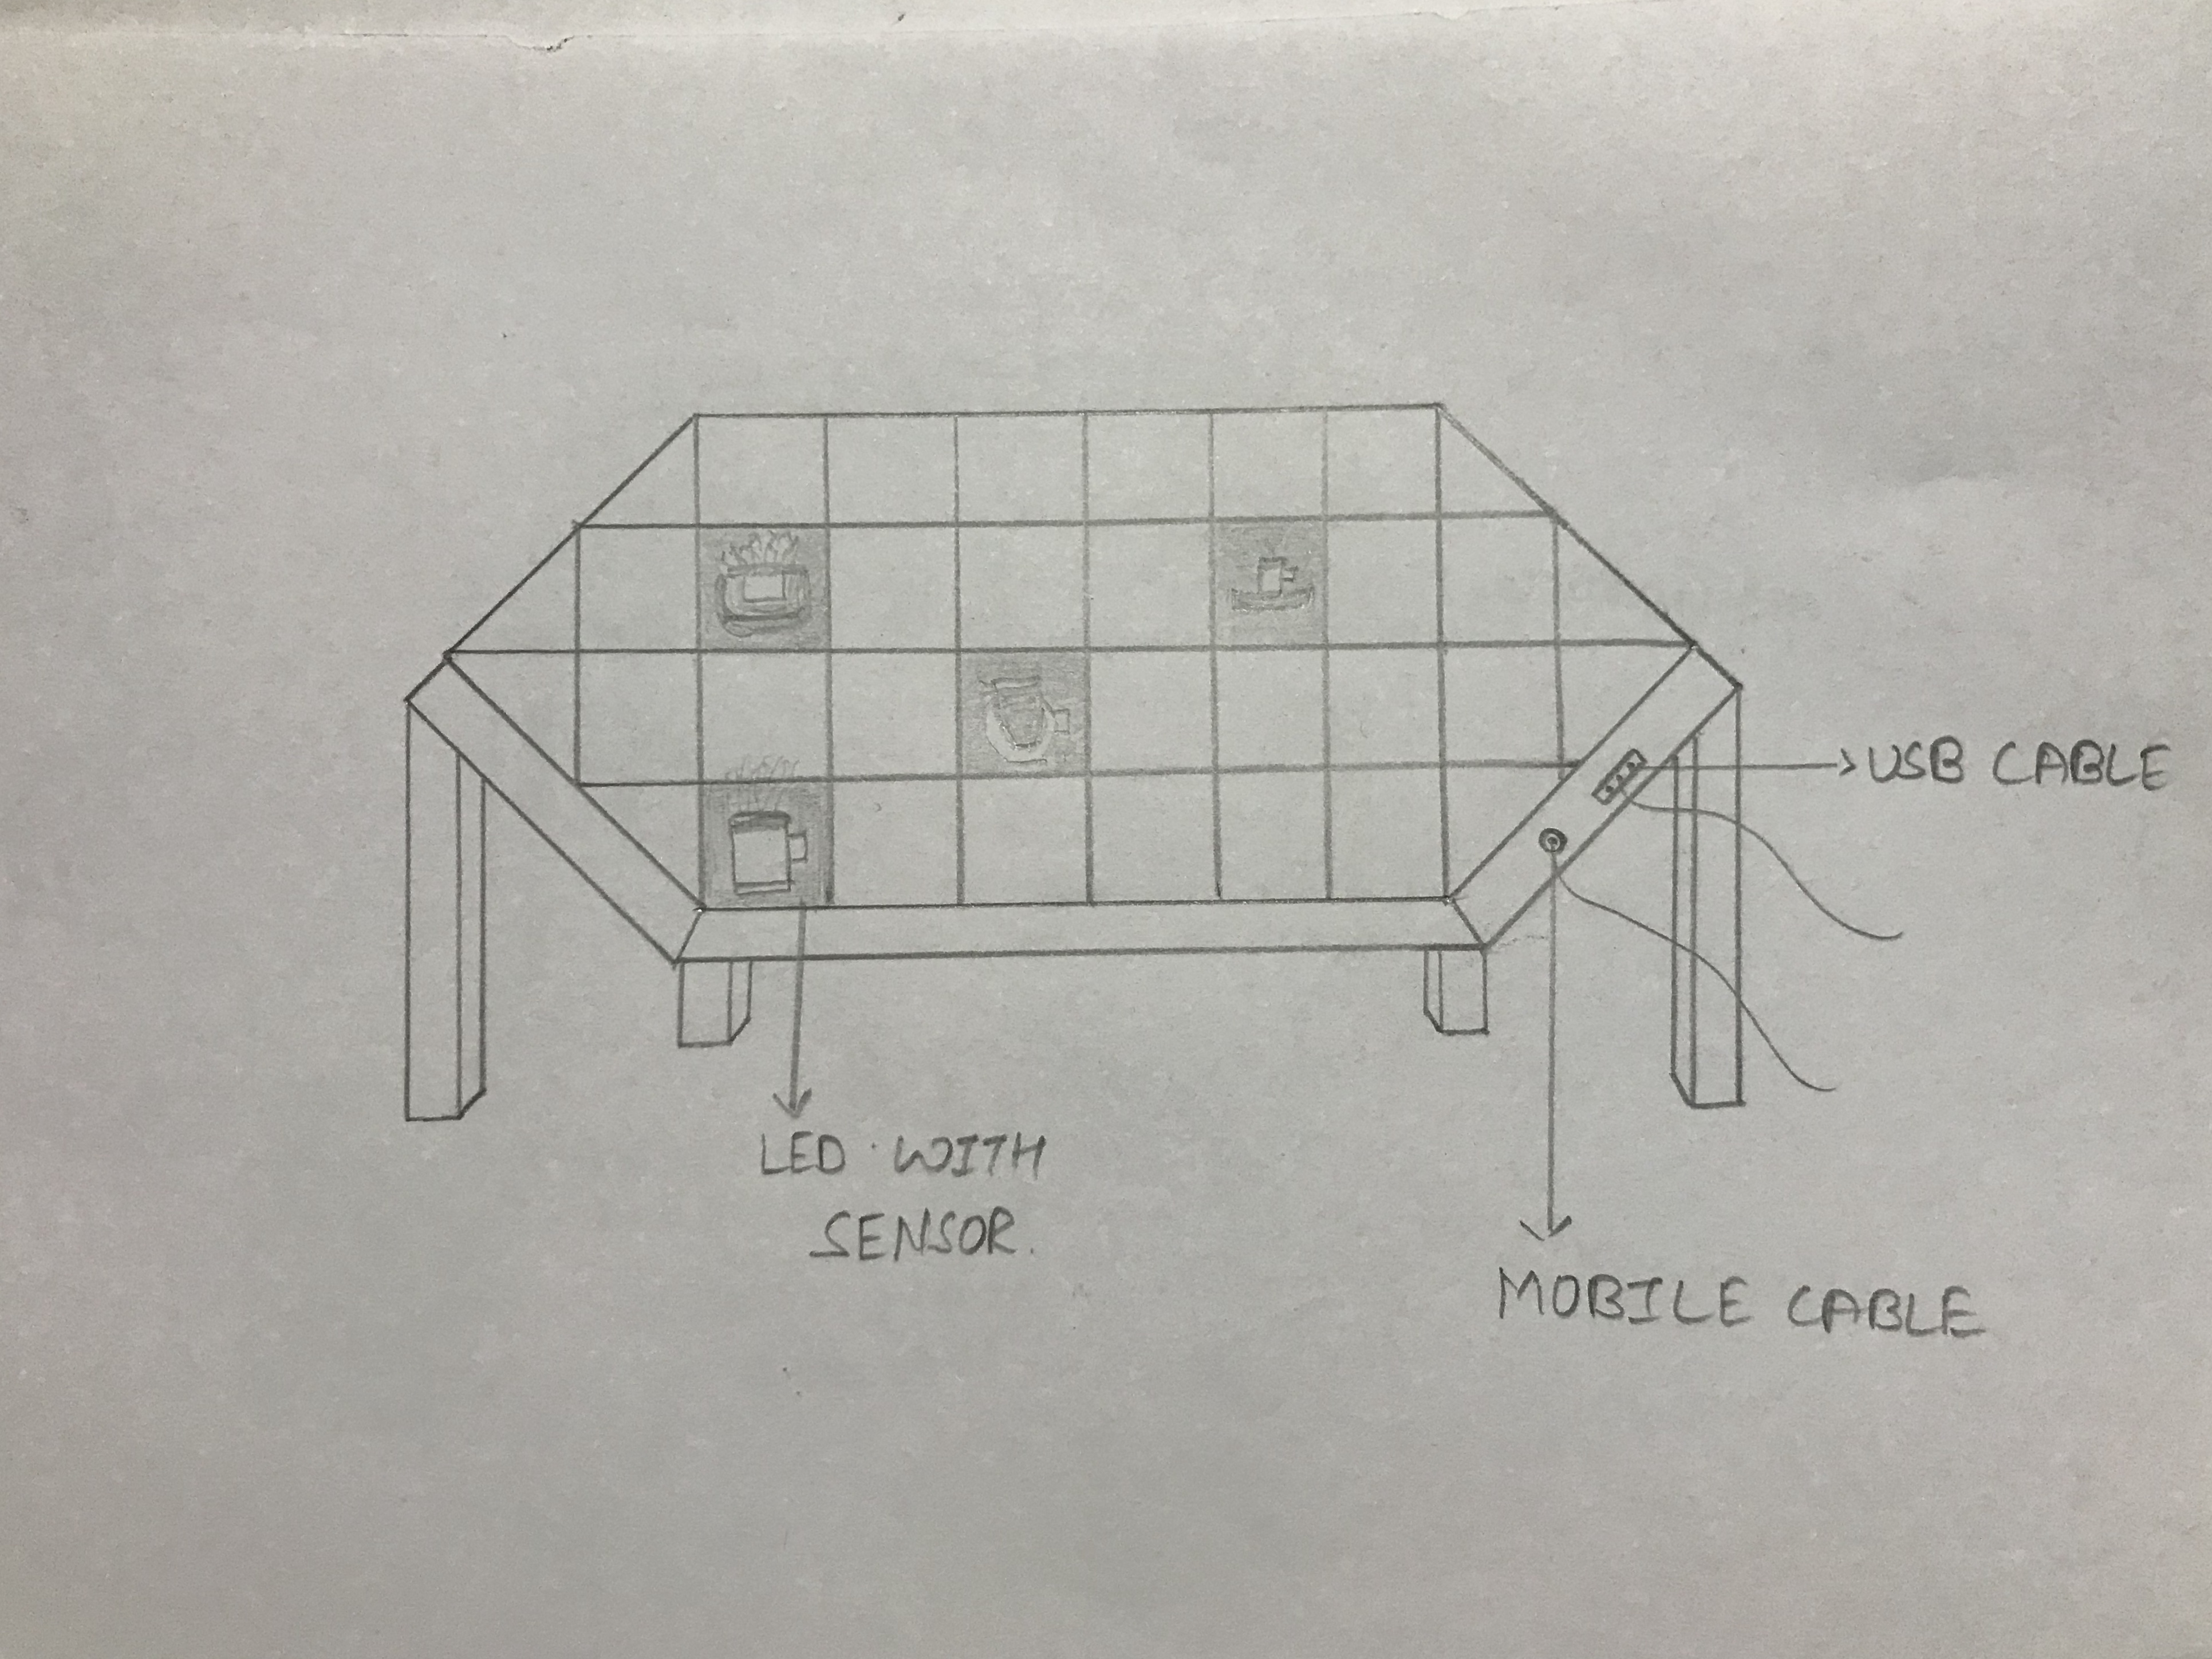 USB CABLE
LED WITH
SENSOR.
MOBILE CABLE